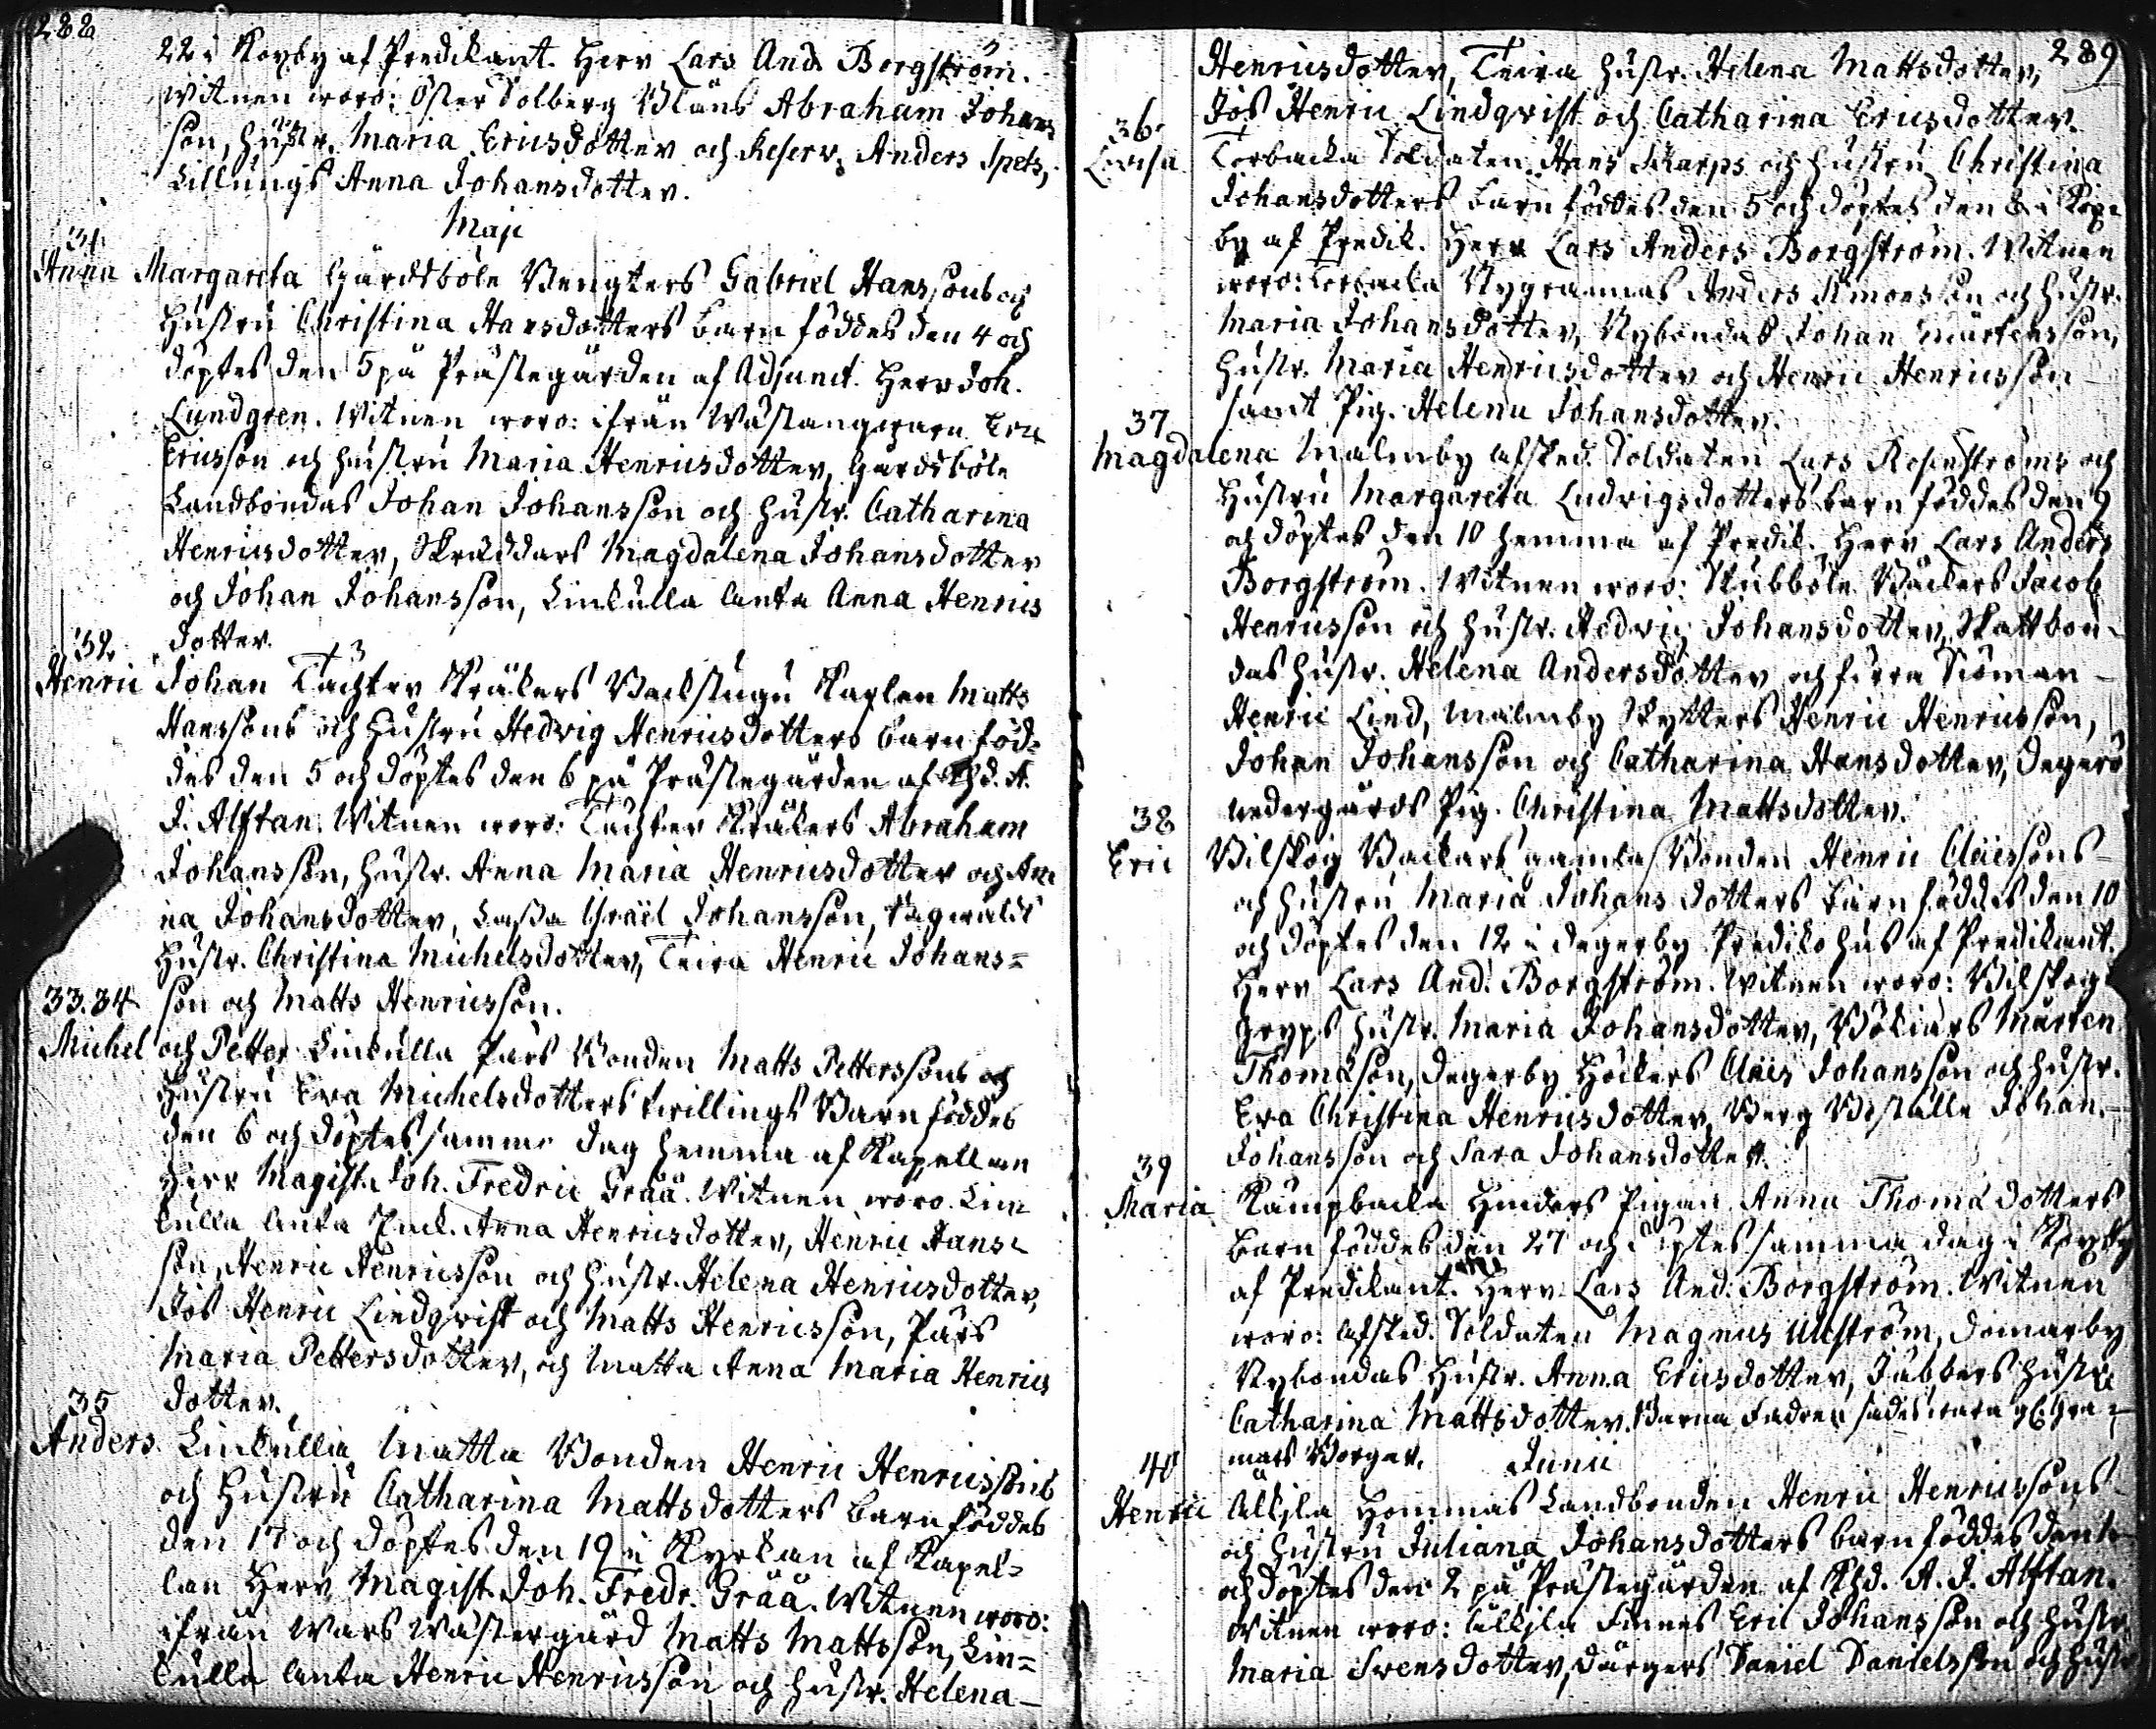 288
22 i Köpby af Predikant. Herr Lars And. Borgström.
Witnen woro: Öster Solberg Kläns Abraham Johans
son, hustr. Maria Ericsdotter och Reserv. Anders Spets,
Lillungs Anna Johansdotter.
Maji
31.
Anna Margareta Gärdsböle Bengters Gabriel Hanssons och
Hustru Christina Hansdotters barn föddes den 4 och
döptes den 5 på Prästegården af Adjunct. Herr Joh.
Lundgren. Witnen woro: ifrån Wästan Eric
Ericsson och hustru Maria Henricsdotter, Gärdsböle
Landbondas Johan Johansson och hustr. Catharina
Henricsdotter, Skräddars Magdalena Johansdotter
och Johan Johansson, Linkulla Anta Anna Henrics
dotter.
32.
Henric Johan Tächter Kräkers Backstugu Karlen Matts
Hanssons och Hustru Hedvig Henricsdotters barn föd=
des den 5 och döptes den 6 på Prästegården af Khd. A.
J. Alftan. Witnen woro: Tächter Kräkers Abraham
Johansson, hustr. Anna Maria Henricsdotter och An
na Johansdotter, Lassa Israël Johansson,
Hustr. Christina Michelsdotter, Teira Henric Johans=
son och Matts Henricsson.
33.34
Michel och Petter Linkulla Pärs Bonden Matts Petterssons och
Hustru Eva Michelsdotters twillings Barn föddes
den 6 och döptes samma dag hemma af Kapellan
Herr Magist. Joh. Fredric Gråå. Witnen woro. Lin
kulla Anta Enck. Anna Henricsdotter, Henric Hans=
son, Henric Henricsson och hustr. Helena Henricsdotter,
Jös Henric Lindqvist och Matts Henricsson, Pärs
Maria Pettersdotter, och Matta Anna Maria Henrics
dotter.
35
Anders Linkulla Matta Bonden Henric Henricssons
och Hustru Catharina Mattsdotters barn föddes
den 17 och döptes den 19 i Kyrkan af Kapel=
lan Herr Magist. Joh. Fredr. Gråå. Witnen woro:
ifrån Wars Wästergård Matts Mattsson, Lin=
kulla Anta Henric Henricsson och hustr. Helena
289
Henricsdotter, Teira hustr. Helena Mattsdotter,
Jös Henric Lindqvist och Catharina Ericsdotter.
36.
Lovisa Torbacka Soldaten Hans Skarps och Hustru Christina
Johansdotters barn föddes den 5 och döptes den 8 i Köp=
by af Predik. Herr Lars Anders Borgström. Witnen
woro: Torbacka Nygrannas Anders Simonsson och hustr.
Maria Johansdotter, Nybondas Johan Mårtensson,
hustr. Maria Henricsdotter och Henric Henricsson
samt Pig. Helena Johansdotter.
37
Magdalena Malmby afsked. Soldaten Lars Rosenströms och
Hustru Margareta Ludvigsdotters barn föddes den 9
och döptes den 10 hemma af Predik. Herr Lars Anders
Borgström. Witnen woro: Kubböle Bäckers Jacob
Henricsson och hustr. Hedvig Johansdotter, Skattbon=
das hustr. Helena Andersdotter och Sioman
Henric Lind, Malmby Skytters Henric Henricsson,
Johan Johansson och Catharina Hansdotter, Degerö
nedergårds Pig. Christina Mattsdotter.
38
Eric Bilskog Backars gamla Bonden Henric Claëssons
och hustru Maria Johansdotters barn föddes den 10
och döptes den 12 i Degerby Predikohus af Predikant.
Herr Lars And. Borgström. Witnen woro: Bilskog
Gryps hustr. Maria Johansdotter, Bökiars Mårten
Thomasson, Degerby Höckers Claës Johansson och hustr.
Eva Christina Henricsdotter, Berg Boställe Johan
Johansson och Sara Johansdotter.
39
Maria Kämpbacka Hinders Pigan Anna Thomædotters
barn föddes den 27 och döptes samma dag i Köpby
af Predikant. Herr Lars And. Borgström. Witnen
woro: Afsked. Soldaten Magnus Ullström, Domarby
Nybondas Hustr. Anna Ericsdotter, Jubbers hustru
Catharina Mattsdotter. Barna Fadren sades wara
Junii
40
Henric Älkila Hommas Landbonden Henric Henricssons
och hustru Juliana Johansdotters barn föddes den 1
och döptes den 2 på Prästegården af Khd. A. J. Alftan.
Witnen woro: Älkila Finnes Eric Johansson och hustr.
Maria Svensdotter, Därgers Daniel Danielsson och hustr